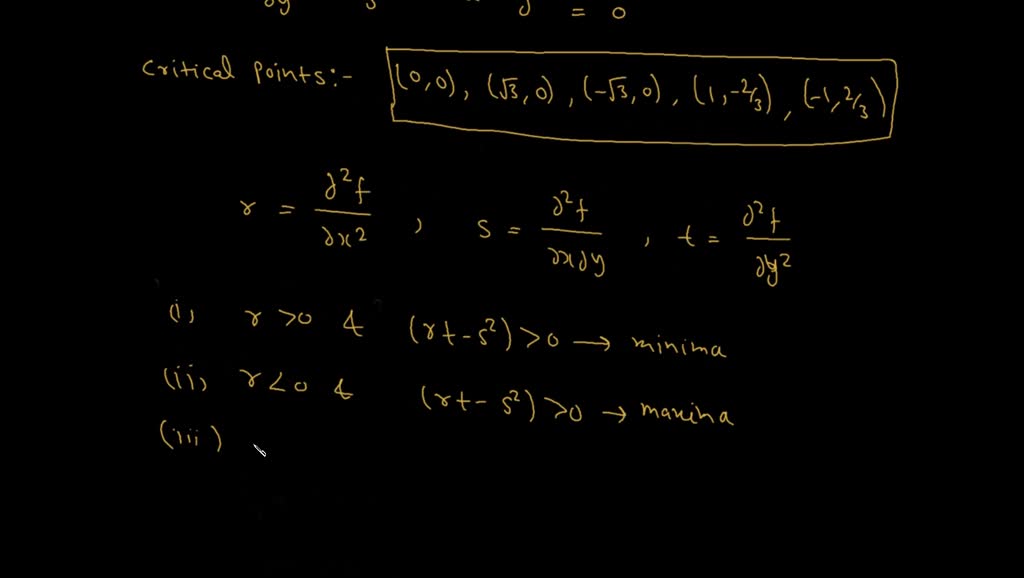 = 0
Critical Points:- (0,0), (√3,0), (-√3,0), (1,-2/3), (-1,2/3)
r = ∂²f/∂x² , s = ∂²f/∂x∂y , t = ∂²f/∂y²
(i) r > 0 & (rt - s²) > 0 → minima
(ii) r < 0 & (rt - s²) > 0 → maxima
(iii)